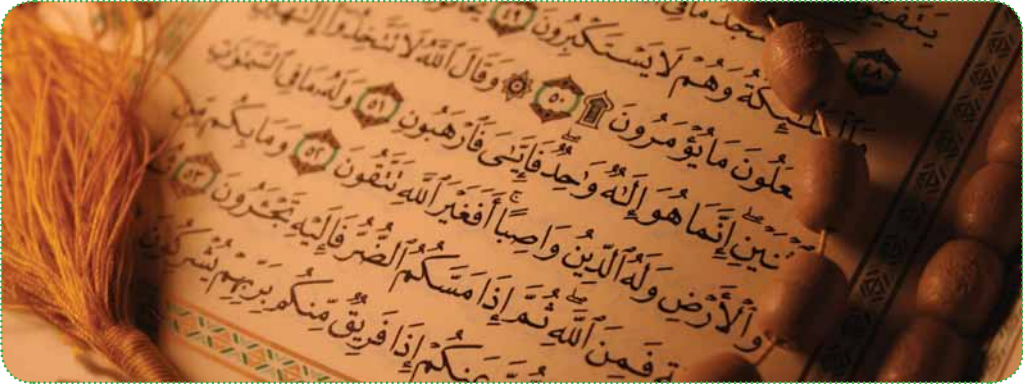 ٤٨ سجد مافي
وَٱلْمَلَـٰٓئِكَةُ وَهُمْ لَا يَسْتَكْبِرُونَ ٤٩
عَلُونَ مَا يُؤْمَرُونَ ۩ ٥٠ ۞ وَقَالَ ٱللَّهُ لَا تَتَّخِذُوٓا۟ إِلَـٰهَيْنِ
ثْنَيْنِ إِنَّمَا هُوَ إِلَـٰهٌ وَٰحِدٌ فَإِيَّـٰىَ فَٱرْهَبُونِ ٥١ وَلَهُۥ مَا فِى ٱلسَّمَـٰوَٰتِ
وَٱلْأَرْضِ وَلَهُ ٱلدِّينُ وَاصِبًا أَفَغَيْرَ ٱللَّهِ تَتَّقُونَ ٥٢ وَمَا بِكُم مِّن
ةٍ فَمِنَ ٱللَّهِ ثُمَّ إِذَا مَسَّكُمُ ٱلضُّرُّ فَإِلَيْهِ تَجْـَٔرُونَ ٥٣
عَنكُمْ إِذَا فَرِيقٌ مِّنكُم بِرَبِّهِمْ يُشْرِكُونَ